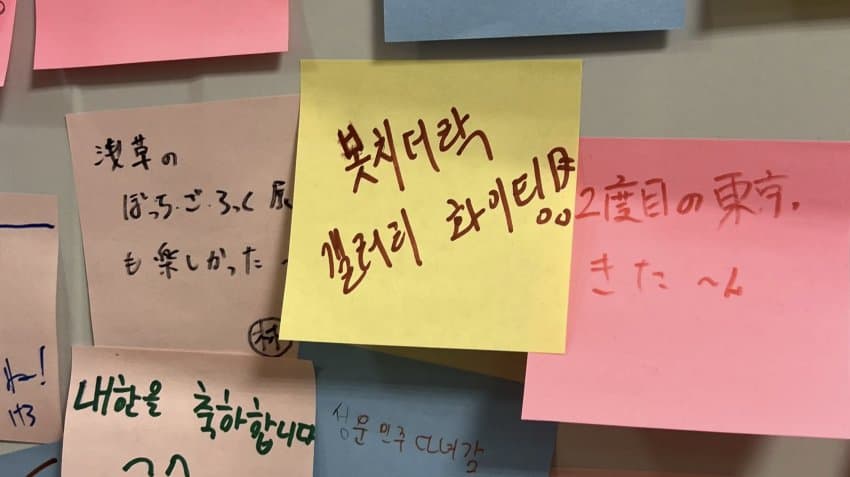 浅草の
ぼっち・ご・ろっく
も楽しかった〜
村
봇치더락
갤러리 화이팅!!
2度目の東京.
きた〜ん
ね!
내한을
축하합니다
성문민주 다녀감